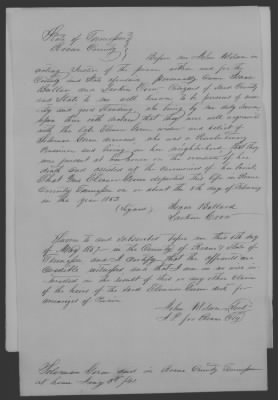 State of Tennessee
Roane County
Before me John Wilson an
acting Justice of the peace within and for the
County and State aforesaid personally came Isaac
Ballard and Larkin Crow Citizens of said County
and State to me well known to be persons of ver
ity and good standing, who being by me duly sworn
upon their oath state that they were well acquainted
with the late Eleanor Geren widow and relict of
Solomon Geren deceased, who was a Revolutionary
Pensioner and living in our neighborhood, that they
were present at her house on the occasion of her
death and assisted at the ceremonies of her burial
That Mrs Eleanor Geren departed this life in Roane
County Tennessee on or about the 8th day of February
in the year 1852
(Signed) Isaac Ballard
Larkin Crow
Sworn to and subscribed before me this 5th day
of May 185 in the County of Roane & State of
Tennessee and I certify that the affiants are
credible witnesses and that I am in no wise in
terested in the result of this or any other claim
of the heirs of the said Eleanor Geren decd for
arrearages of Pension
John Wilson
J.P. for Roane Cty
Solomon Geren died in Roane County Tennessee
at home